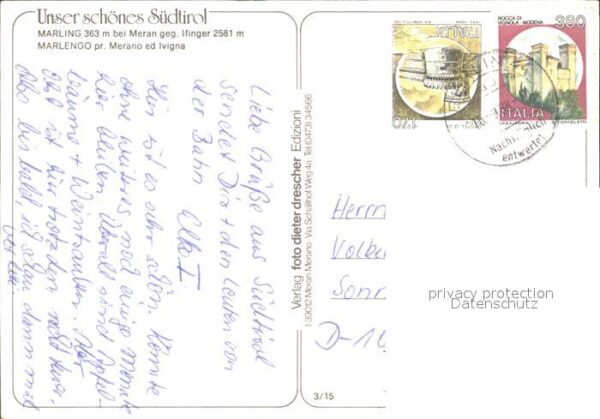 Unser schönes Südtirol
MARLING 363 m bei Meran geg. Ifinger 2581 m
MARLENGO pr. Merano ed Ivigna
Liebe Grüße aus Südtirol
sendet Dir + den Leuten von
der Bahn
Hier ist es sehr schön. Könnte
ohne weiteres noch einige Monate
hier bleiben. Überall sind Apfel-
bäume + Weintrauben. Aber
ist hier trotzdem nicht
Also bis bald, ich schau dann mal
Verlag foto dieter drescher Edizioni
I-39012 Meran Merano - Via Schallhof Weg 4a - Tel. (0473) 34566
3/15
170
ITALIA
ROCCA DI
VIGNOLA - MODENA
380
ITALIA
Nachträglich
entwertet
Herrn
Volke
Sonn
D-1
privacy protection
Datenschutz